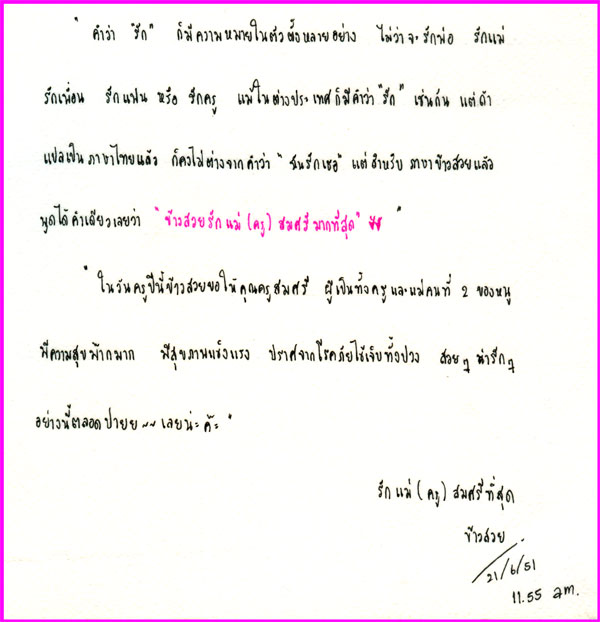 " คำว่า "รัก" ก็มีความหมายในตัวตั้งหลายอย่าง ไม่ว่าจะรักพ่อ รักแม่
รักเพื่อน รักแฟน หรือ รักครู แม้ในต่างประเทศก็มีคำว่า "รัก" เช่นกัน แต่ถ้า
แปลเป็นภาษาไทยแล้ว ก็คงไม่ต่างจากคำว่า "ฉันรักเธอ" แต่สำหรับ ภาษาข้าวสวยแล้ว
พูดได้คำเดียวเลยว่า "ข้าวสวยรักแม่ (ครู) สมศรีมากที่สุด" "
" ในวันครูปีนี้ข้าวสวยขอให้คุณครูสมศรี ผู้เป็นทั้งครูและแม่คนที่ 2 ของหนู
มีความสุขม๊ากมาก มีสุขภาพแข็งแรง ปราศจากโรคภัยไข้เจ็บทั้งปวง สวยๆ น่ารักๆ
อย่างนี้ตลอดปายย ~~ เลยน่ะค๊ะ "
รักแม่ (ครู) สมศรีที่สุด
ข้าวสวย
21/6/51
11.55 am.